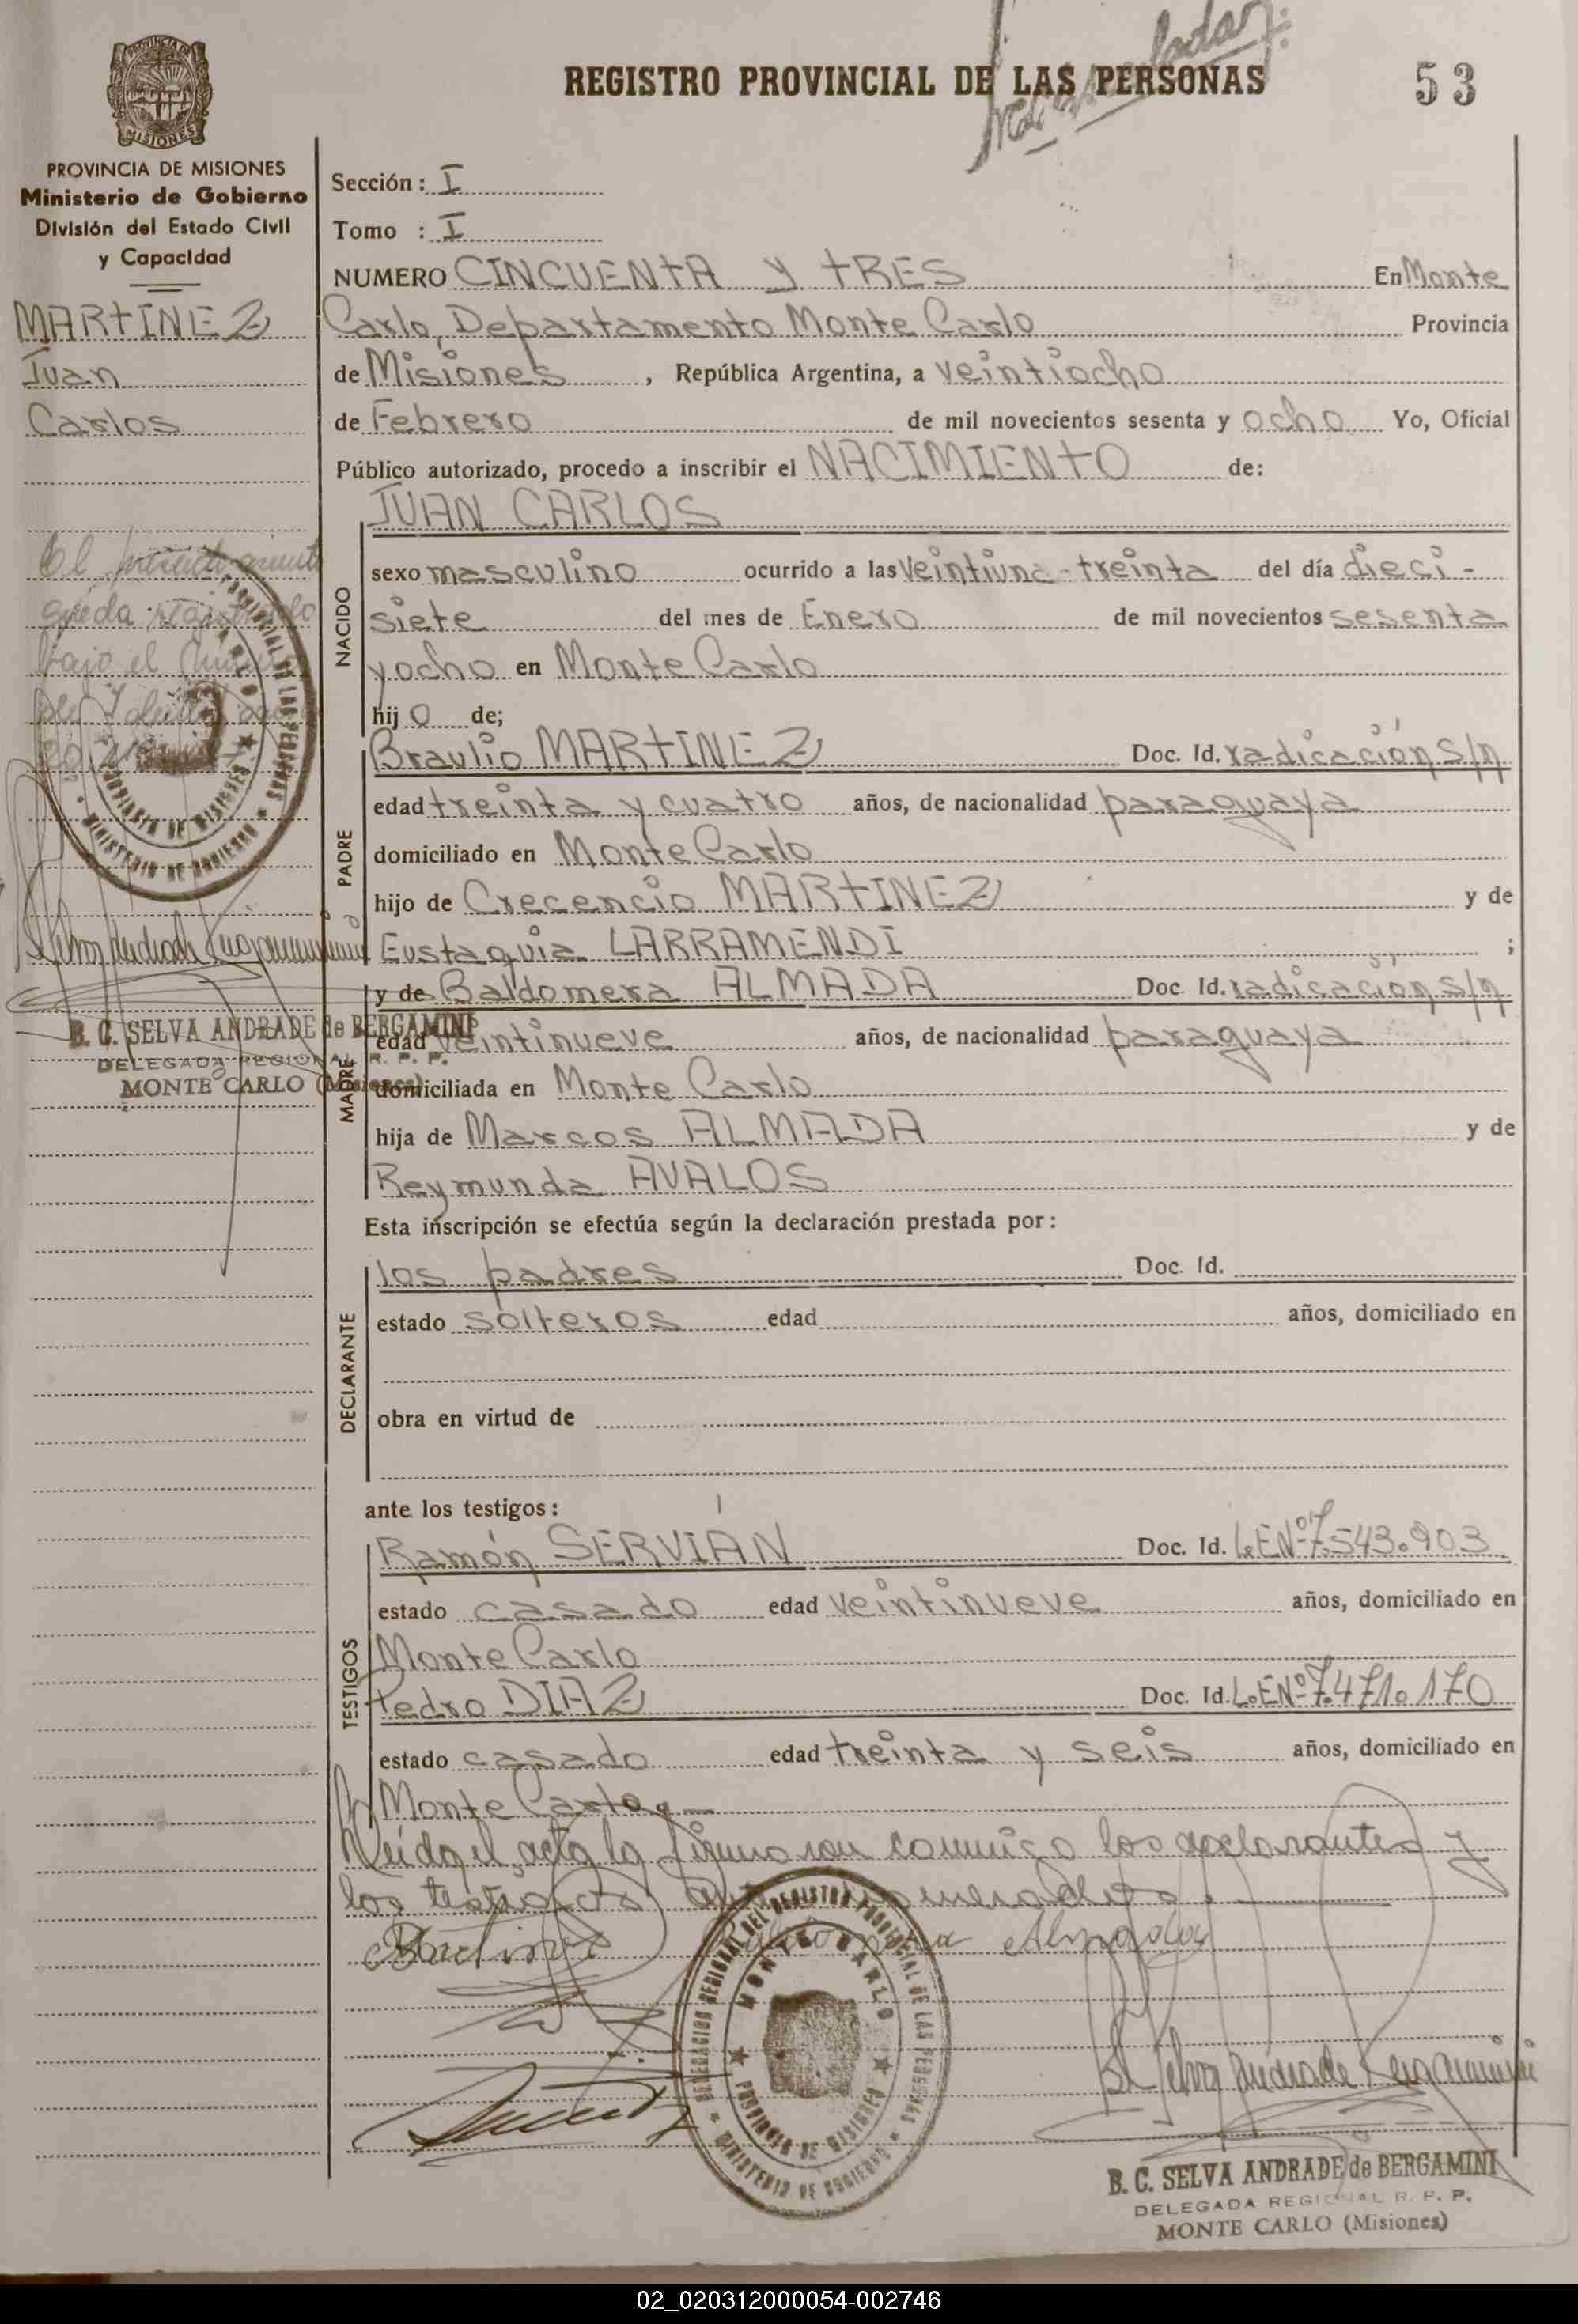 REGISTRO PROVINCIAL DE LAS PERSONAS
53
PROVINCIA DE
MISIONES
PROVINCIA DE MISIONES
Ministerio de Gobierno
División del Estado Civil
y Capacidad
MARTINEZ
Juan
Carlos
El
queda registrado
bajo el
B. C. SELVA ANDRADE de BERGAMINI
DELEGADA REGIONAL R. P. P.
MONTE CARLO (Misiones)
Sección: I
Tomo : I
NUMERO CINCUENTA y TRES En Monte
Carlo, Departamento Monte Carlo Provincia
de Misiones, República Argentina, a veintiocho
de Febrero de mil novecientos sesenta y ocho Yo, Oficial
Público autorizado, procedo a inscribir el NACIMIENTO de:
NACIDO
JUAN CARLOS
sexo masculino ocurrido a las veintiuna-treinta del día dieci-
siete del mes de Enero de mil novecientos sesenta
y ocho en Monte Carlo
hijo de;
PADRE
Braulio MARTINEZ Doc. Id. radicación s/n
edad treinta y cuatro años, de nacionalidad paraguaya
domiciliado en Monte Carlo
hijo de Crecencio MARTINEZ y de
Eustaquia LARRAMENDI ;
MADRE
y de Baldomera ALMADA Doc. Id. radicación s/n
edad veintinueve años, de nacionalidad paraguaya
domiciliada en Monte Carlo
hija de Marcos ALMADA y de
Reymunda AVALOS
Esta inscripción se efectúa según la declaración prestada por:
DECLARANTE
los padres Doc. Id.
estado solteros edad años, domiciliado en
obra en virtud de
ante los testigos:
TESTIGOS
Ramón SERVIÁN Doc. Id. L.E.Nº 7.543.903
estado casado edad veintinueve años, domiciliado en
Monte Carlo
Pedro DIAZ Doc. Id. L.E.Nº 7.471.170
estado casado edad treinta y seis años, domiciliado en
Monte Carlo.-
Leida el acta la firman conmigo los declarantes y
los testigos
Baldomera Almada
DELEGACION REGIONAL DEL REGISTRO PROVINCIAL DE LAS PERSONAS
MONTE CARLO
PROVINCIA DE MISIONES
MINISTERIO DE GOBIERNO
B. C. Selva Andrade de Bergamini
B. C. SELVA ANDRADE de BERGAMINI
DELEGADA REGIONAL R. P. P.
MONTE CARLO (Misiones)
02_020312000054-002746